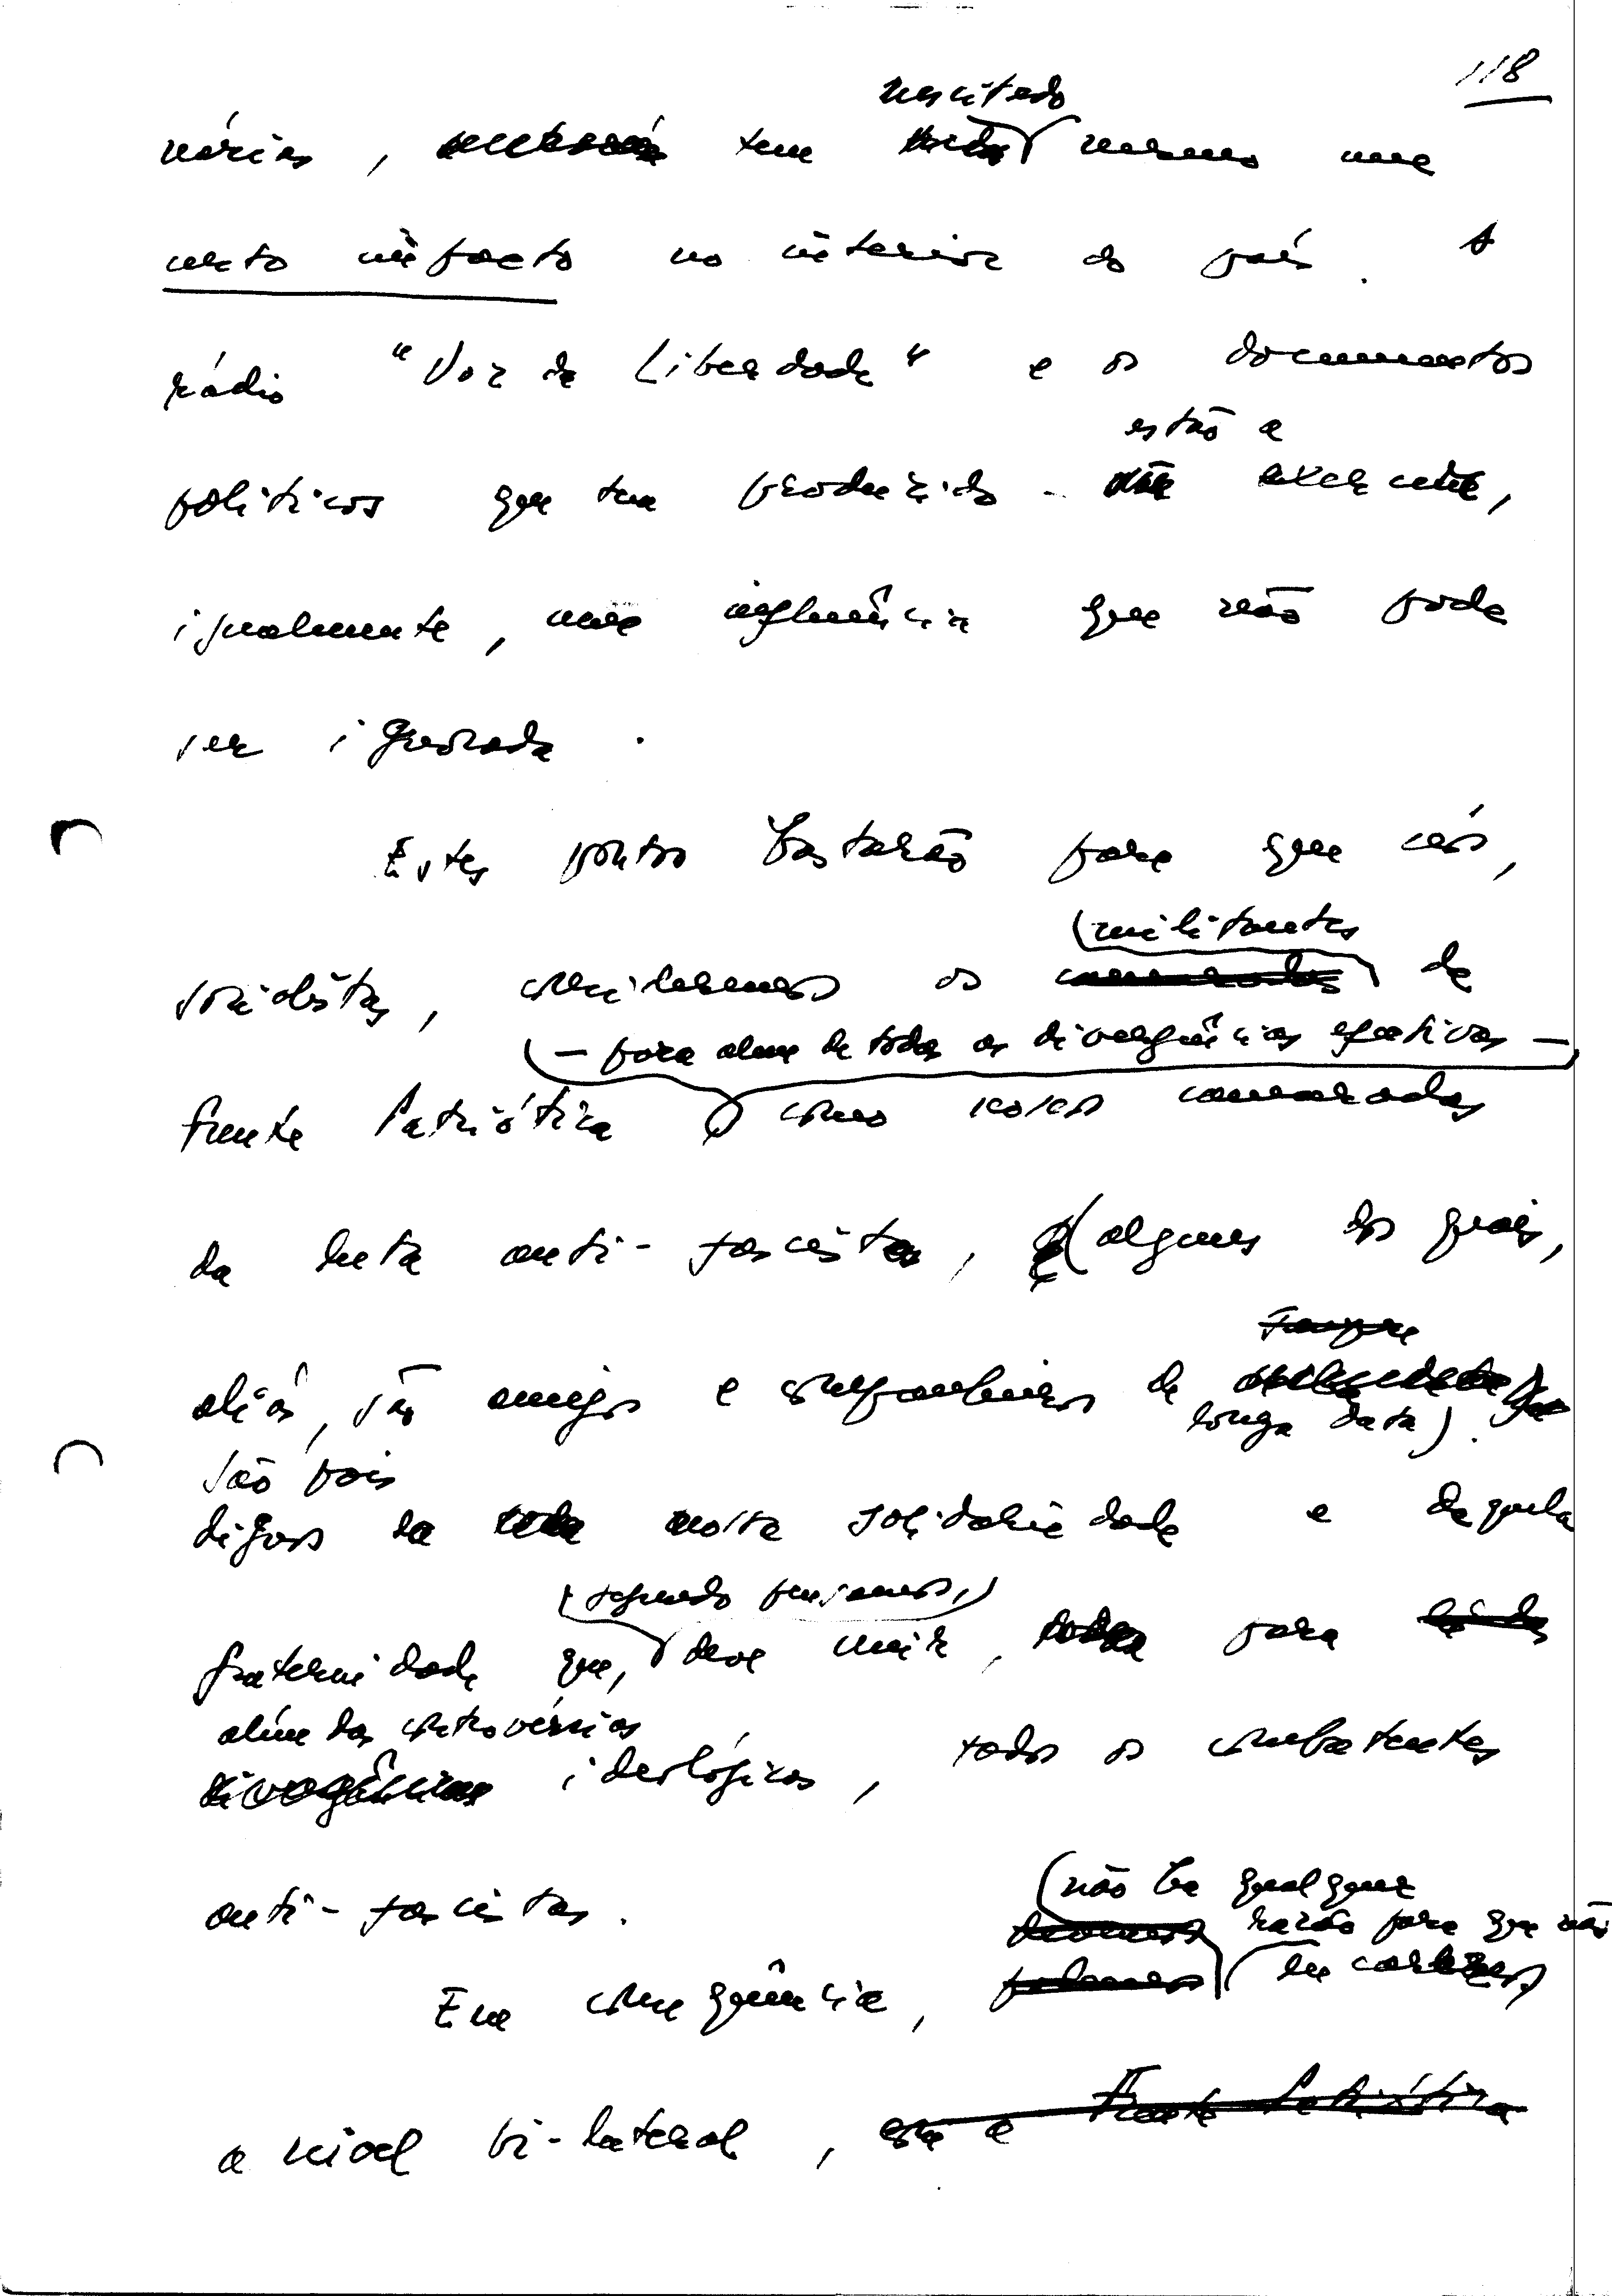 118
suscitado
várias, tem mesmo um
certo impacto no interior do país. A
rádio "Voz da Liberdade" e os documentos
estão a
políticos que tem produzido - exercer,
igualmente, uma influência que não pode
ser ignorada.
Estes pontos bastarão para que nós,
militantes
socialistas, consideremos os camaradas da
- para além de todas as divergências efectivas -
Frente Patriótica como nossos camaradas
da luta anti-fascista, (alguns dos quais,
aliás, são amigos e companheiros de
longa data).
São pois
dignos da nossa solidariedade e daquela
segundo pensamos,
fraternidade que, deve unir, para
além das controvérsias
divergências ideológicas, todos os combatentes
anti-fascistas.
não há qualquer
razão para que não
Em consequência,
a nível bi-lateral, com a Frente Patriótica